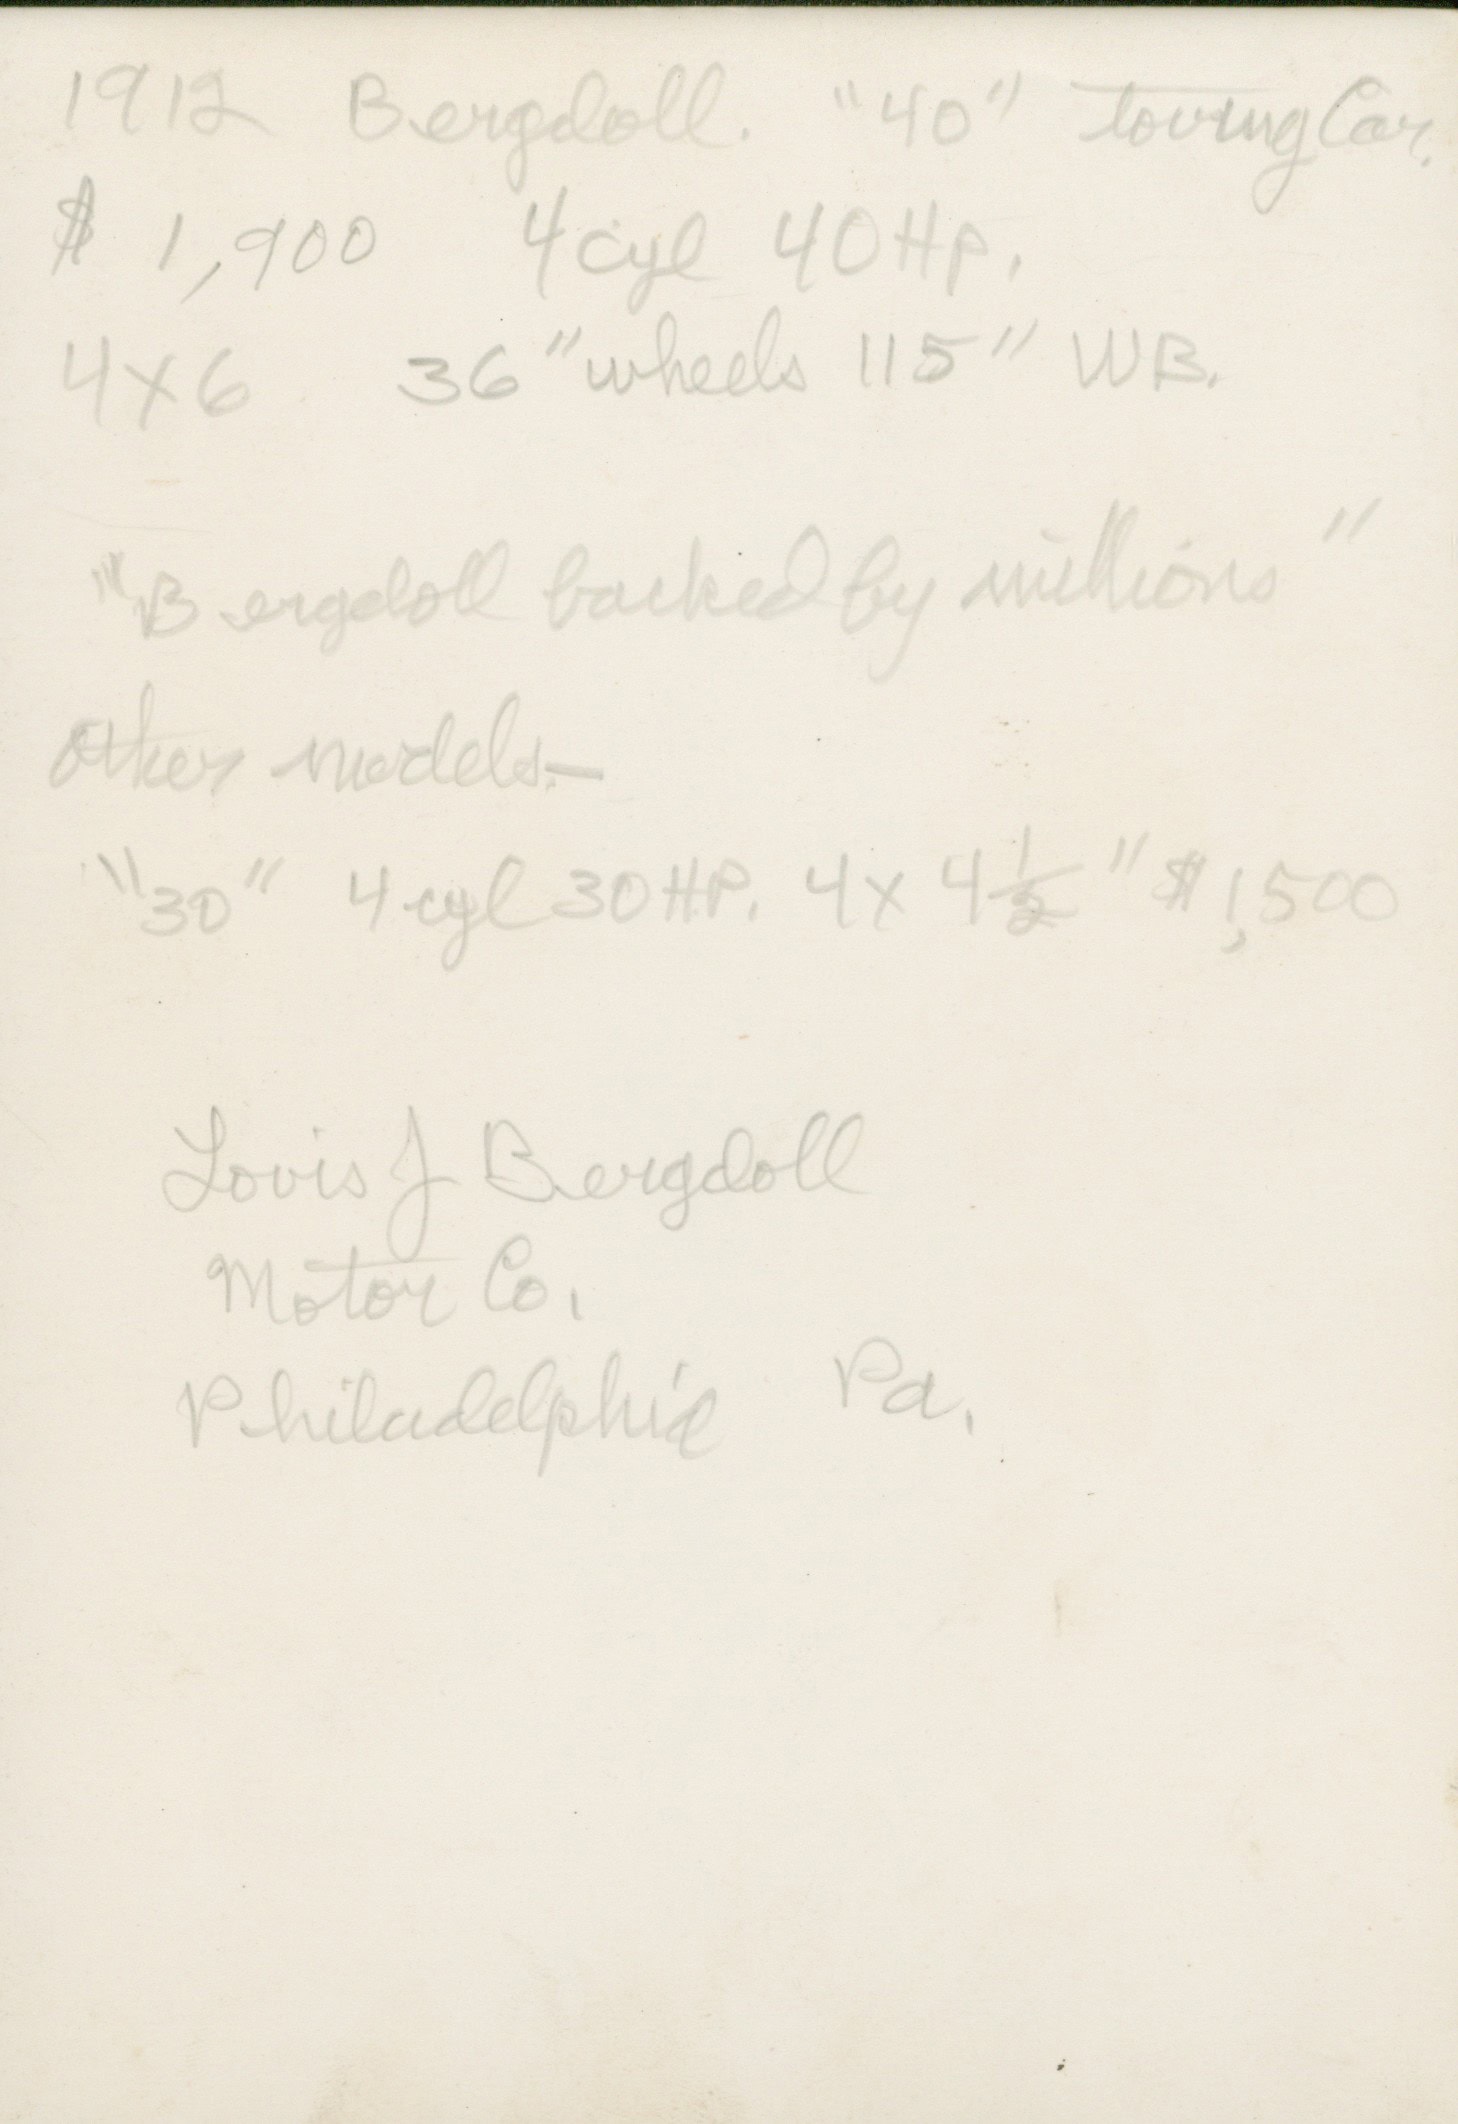 1912 Bergdoll. "40" touring Car.
$ 1,900 4 cyl 40 HP.
4 x 6 36" wheels 115" WB.
"Bergdoll backed by millions"
Other models.—
"30" 4 cyl 30 H.P. 4 x 4 1/2" $1,500
Louis J Bergdoll
Motor Co.
Philadelphia Pa.